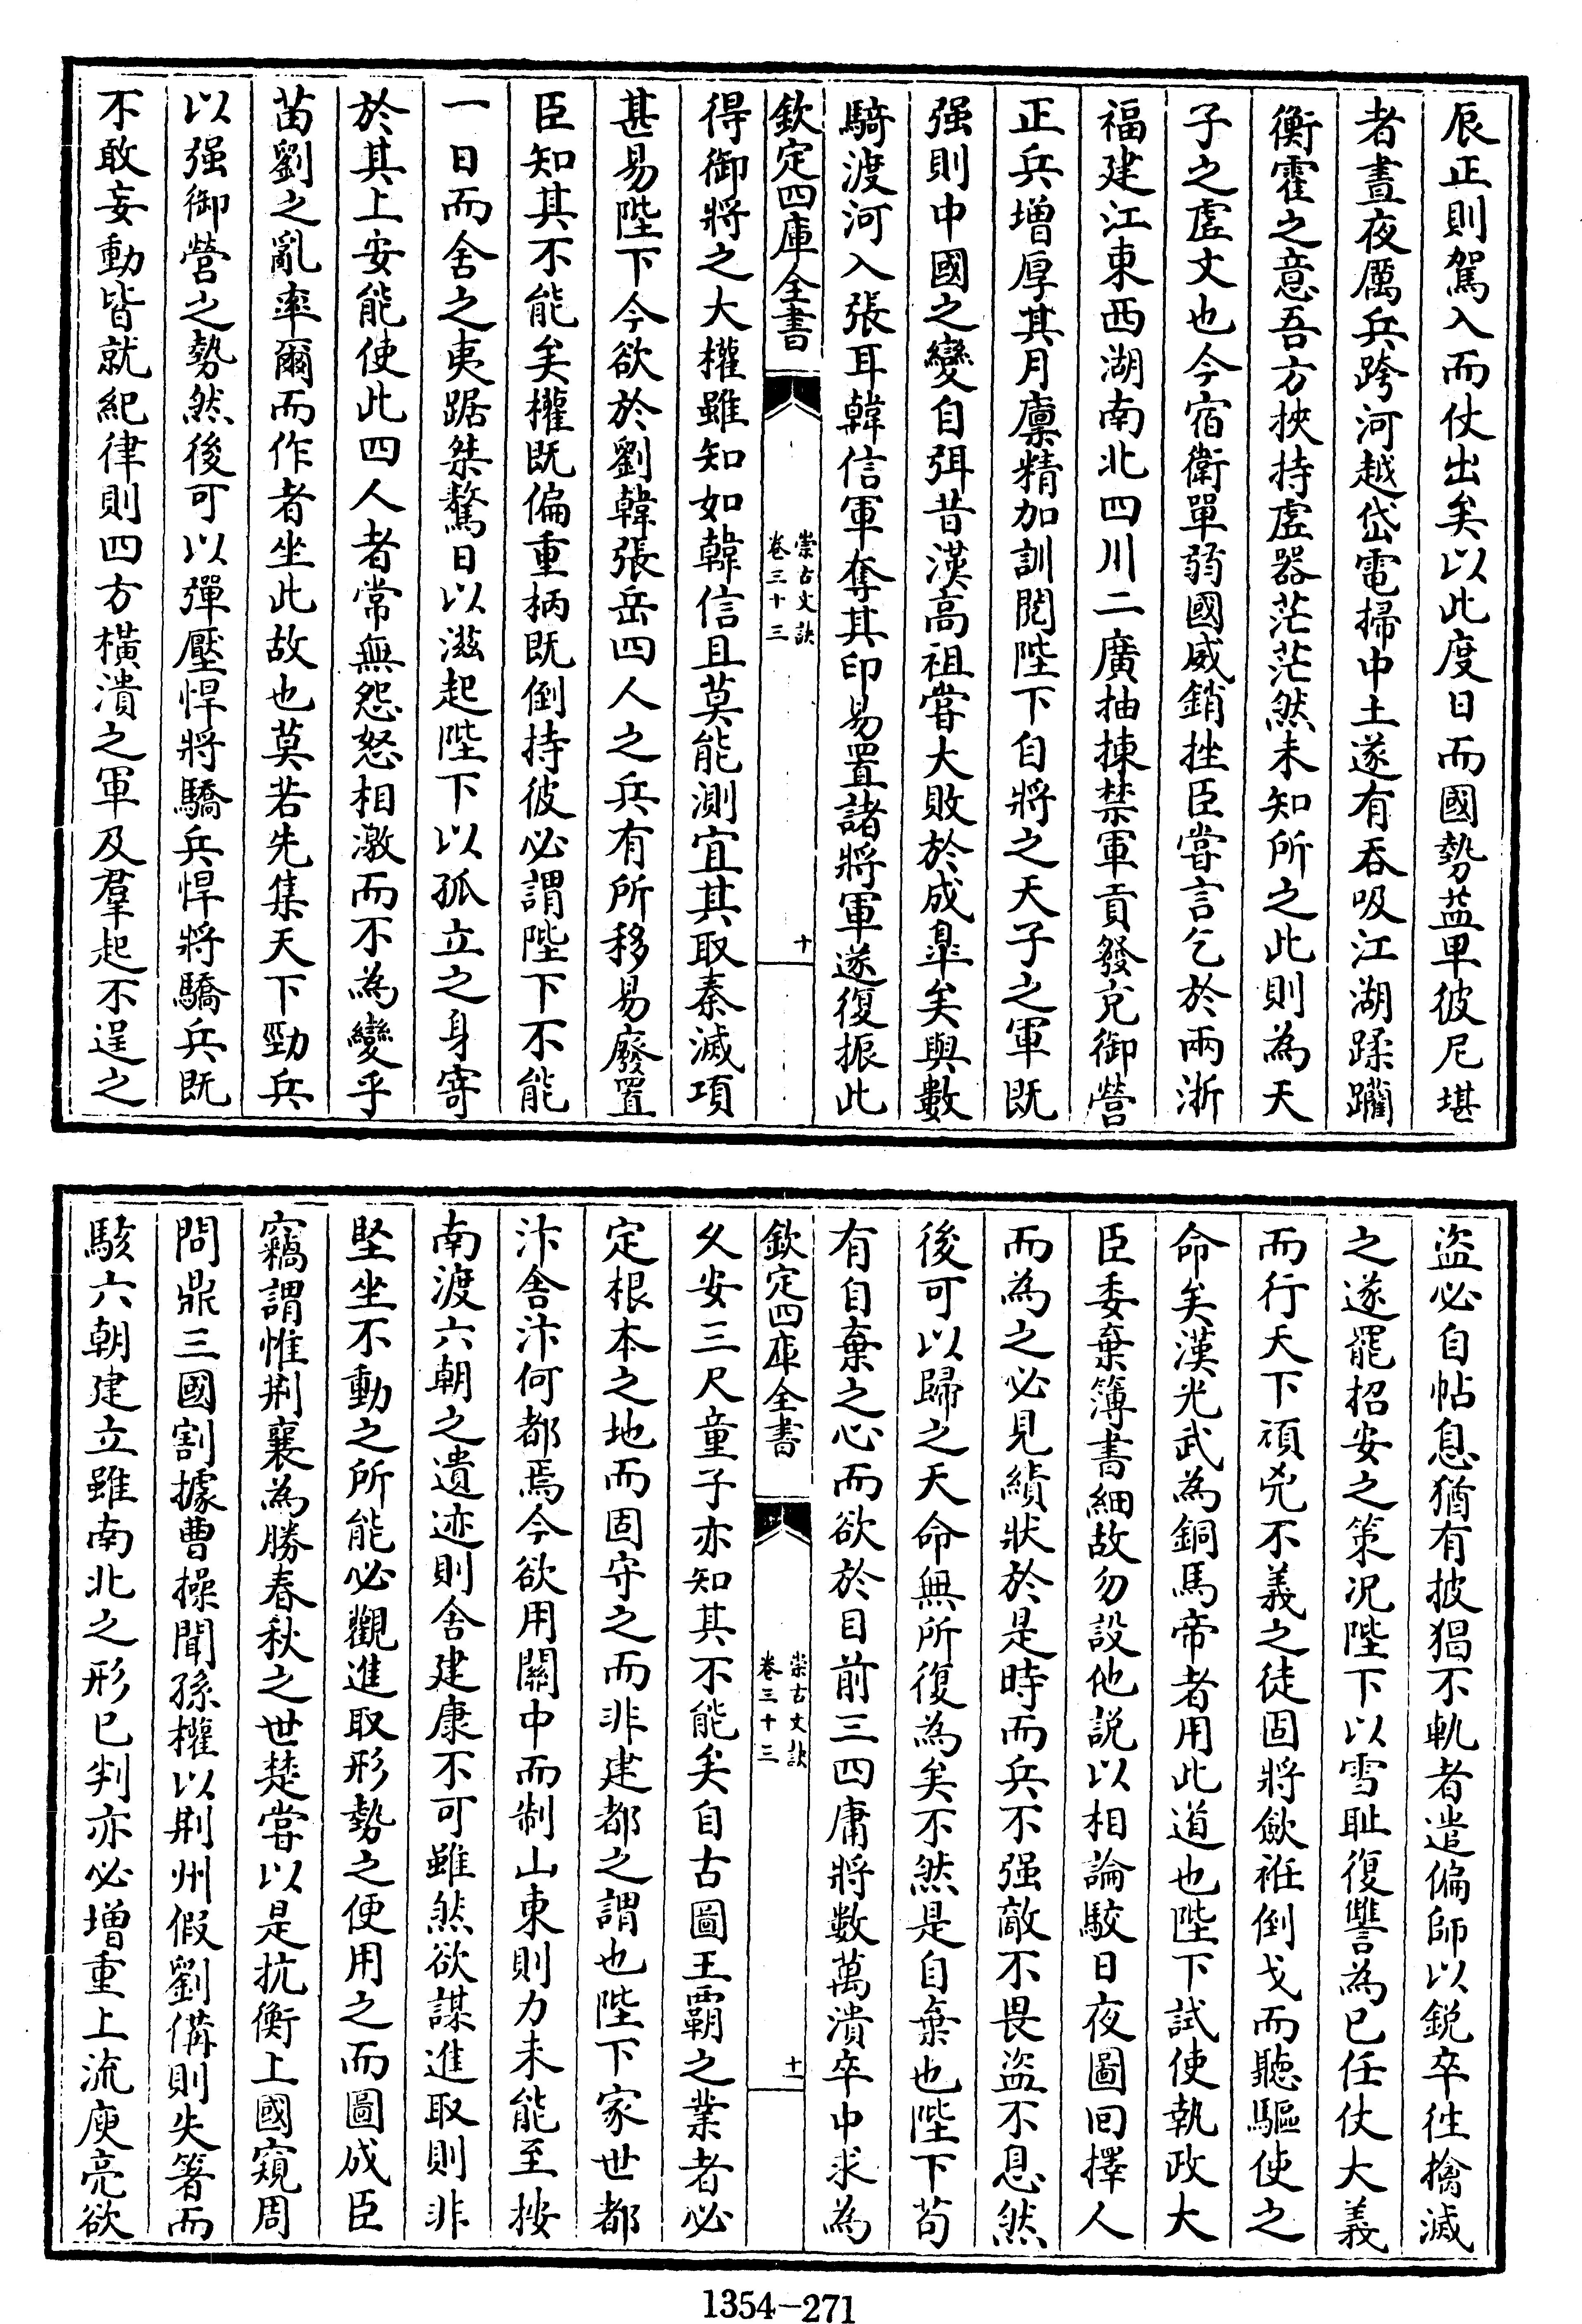 辰正則駕入而仗出矣以此度日而國勢益卑彼尼堪
者晝夜厲兵跨河越岱電掃中土遂有吞吸江湖蹂躪
衡霍之意吾方挾持虛器茫茫然未知所之此則為天
子之虛文也今宿衛單弱國威銷挫臣嘗言乞於兩浙
福建江東西湖南北四川二廣抽揀禁軍貢發充御營
正兵增厚其月廩精加訓閲陛下自將之天子之軍既
强則中國之變自弭昔漢高祖嘗大敗於成臯矣與數
騎渡河入張耳韓信軍奪其印易置諸將軍遂復振此
欽定四庫全書
崇古文訣
卷三十三
十
得御將之大權雖知如韓信且莫能測宜其取秦滅項
甚易陛下今欲於劉韓張岳四人之兵有所移易廢置
臣知其不能矣權既偏重柄既倒持彼必謂陛下不能
一日而舍之夷踞桀驁日以滋起陛下以孤立之身寄
於其上安能使此四人者常無怨怒相激而不為變乎
苗劉之亂率爾而作者坐此故也莫若先集天下勁兵
以强御營之勢然後可以彈壓悍將驕兵悍將驕兵既
不敢妄動皆就紀律則四方橫潰之軍及羣起不逞之
盜必自帖息猶有披猖不軌者遣偏師以銳卒往擒滅
之遂罷招安之策况陛下以雪耻復讐為已任仗大義
而行天下頑兇不義之徒固將歛袵倒戈而聽驅使之
命矣漢光武為銅馬帝者用此道也陛下試使執政大
臣委棄簿書細故勿設他説以相論駮日夜圖回擇人
而為之必見績狀於是時而兵不强敵不畏盜不息然
後可以歸之天命無所復為矣不然是自棄也陛下茍
有自棄之心而欲於目前三四庸將數萬潰卒中求為
欽定四庫全書
崇古文訣
卷三十三
十一
久安三尺童子亦知其不能矣自古圖王霸之業者必
定根本之地而固守之而非建都之謂也陛下家世都
汴舍汴何都焉今欲用關中而制山東則力未能至按
南渡六朝之遺迹則舍建康不可雖然欲謀進取則非
堅坐不動之所能必觀進取形勢之便用之而圖成臣
竊謂惟荆襄為勝春秋之世楚嘗以是抗衡上國窺周
問鼎三國割據曹操聞孫權以荆州假劉備則失箸而
駭六朝建立雖南北之形已判亦必增重上流庾亮欲
1354—271